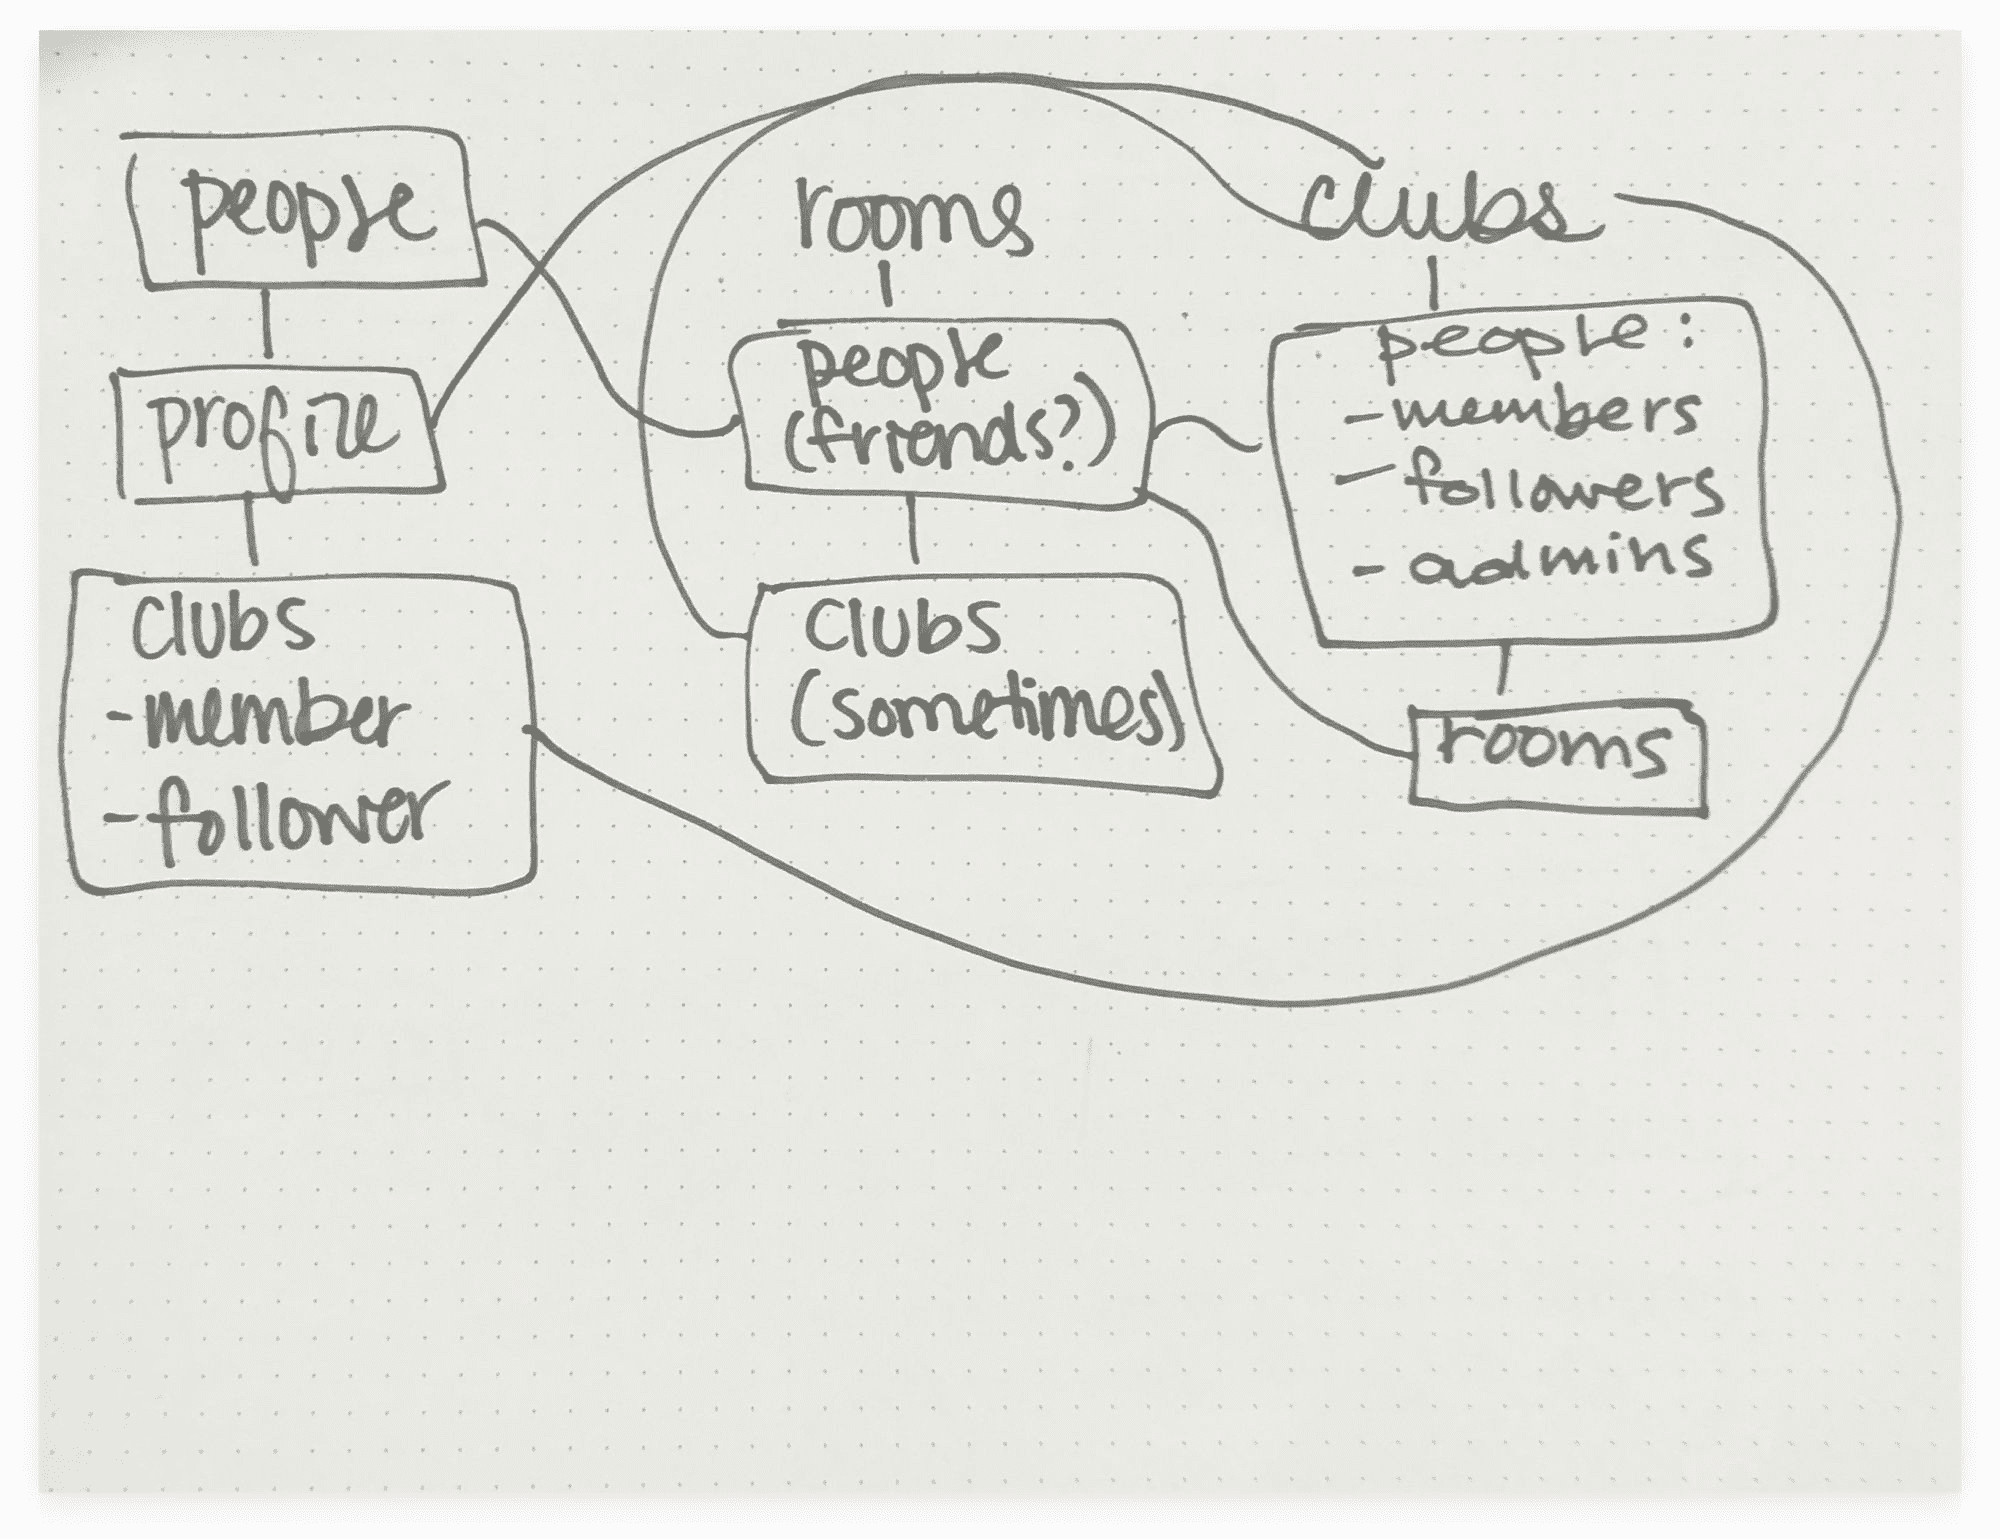 people
profile
clubs
- member
- follower
rooms
people
(friends?)
clubs
(sometimes)
clubs
people:
- members
- followers
- admins
rooms